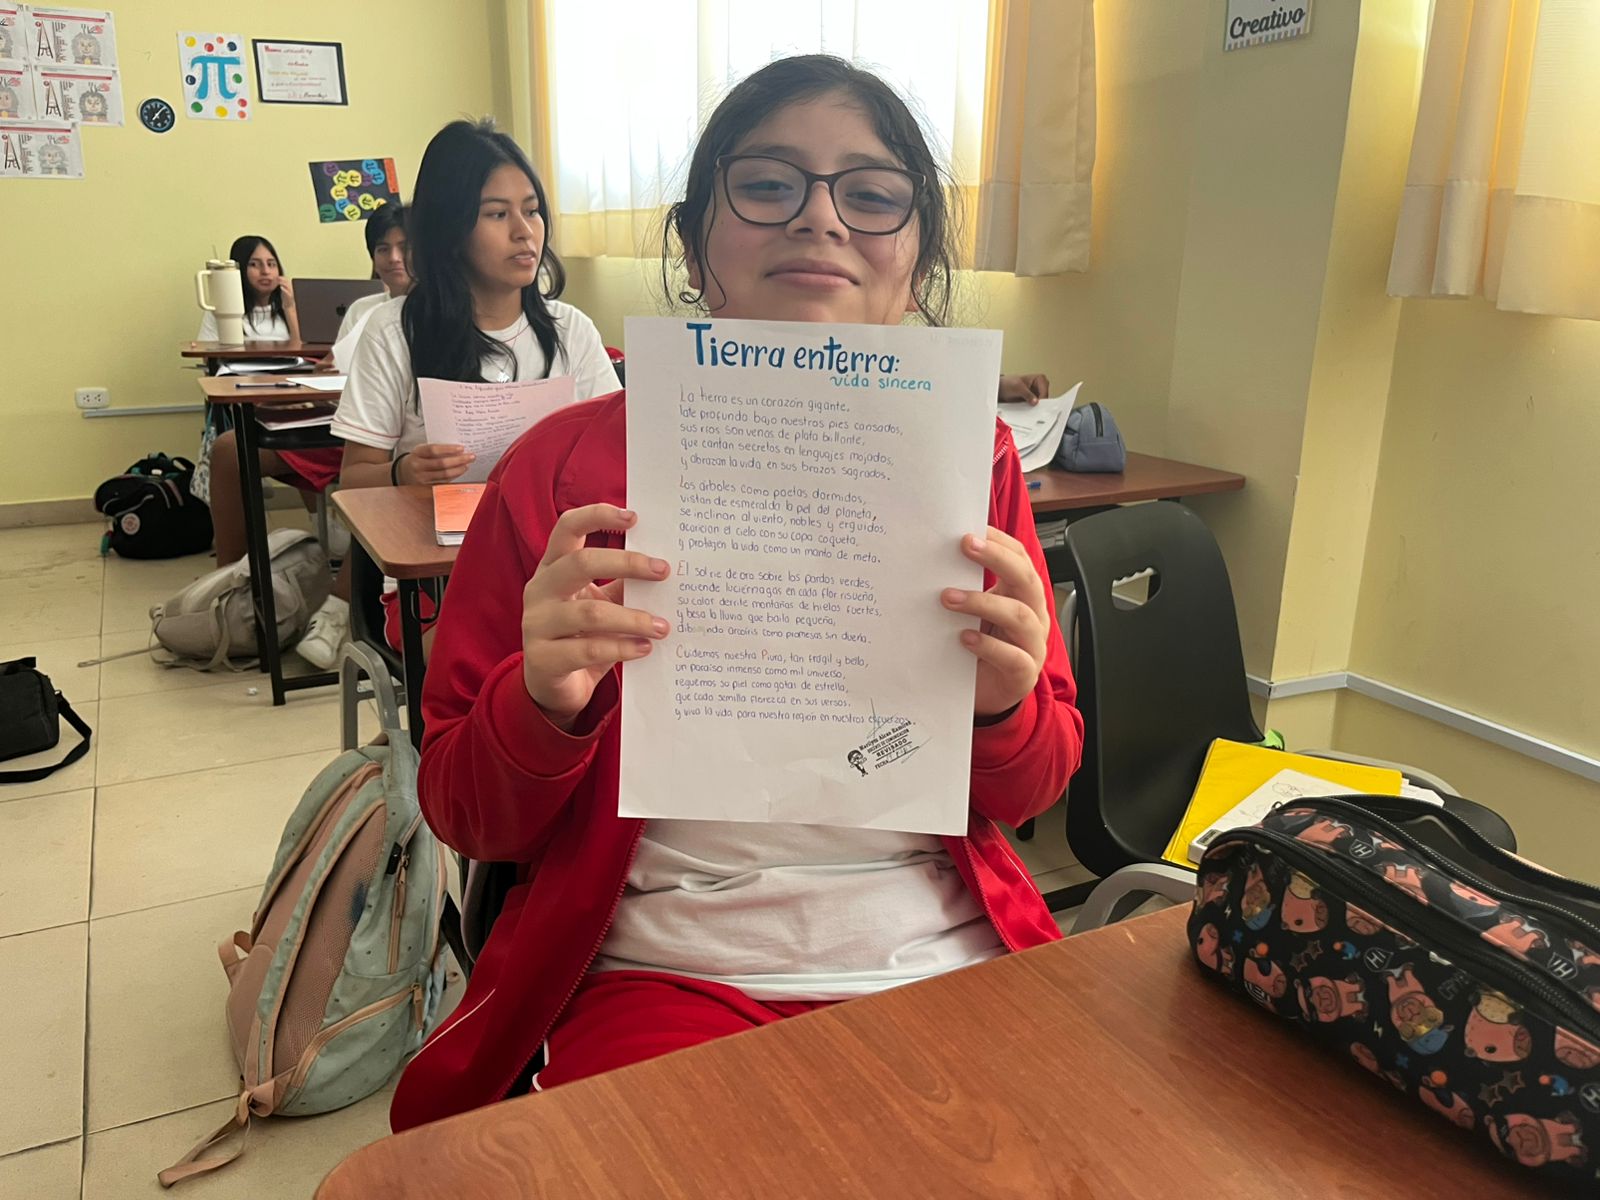 Creativo
π
Tierra enterra:
vida sincera
La tierra es un corazón gigante.
late profunda bajo nuestros pies cansados,
sus ríos son venas de plata brillante,
que cantan secretos en lenguajes mojados,
y abrazan la vida en sus brazos sagrados.
Los árboles como poetas dormidos,
vistan de esmeralda la piel del planeta,
se inclinan al viento, nobles y erguidos,
acarician el cielo con su copa coqueta,
y protejen la vida como un manto de meta.
El sol ríe de oro sobre los pardos verdes,
enciende luciérnagas en cada flor risueña,
su calor derrite montañas de hielos fuertes,
y besa la lluvia que baila pequeña,
arcoíris como promesas sin dueña.
Cuidemos nuestra Piura, tan frágil y bella,
un paraíso inmenso como mil universo,
reguemos su piel como gotas de estrella,
que cada semilla florezca en sus versos.
y viva la vida para nuestra región en nuestros esfuerzos.
DOCENTE DE COMUNICACIÓN
REVISADO
FECHA: